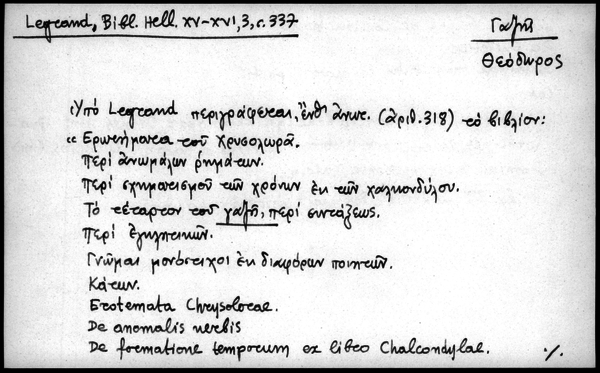 Legrand, Bibl. Hell. XV-XVI, 3, σ. 337
Γαζῆ
Θεόδωρος
Ὑπό Legrand περιγράφεται, ἔνθ' ἄνωτ. (ἀριθ. 318) τό βιβλίον:
"Ερωτήματα τοῦ Χρυσολωρᾶ.
Περί ἀνωμάλων ῥημάτων.
Περί σχηματισμοῦ τῶν χρόνων ἐκ τῶν χαλκονδύλου.
Τό τέταρτον τοῦ γαζῆ, περί συντάξεως.
Περί ἐγκλιτικῶν.
Γνῶμαι μονόστιχοι ἐκ διαφόρων ποιητῶν.
Κάτων.
Erotemata Chrysolorae.
De anomalis verbis
De formatione temporum ex libro Chalcondylae.
./.